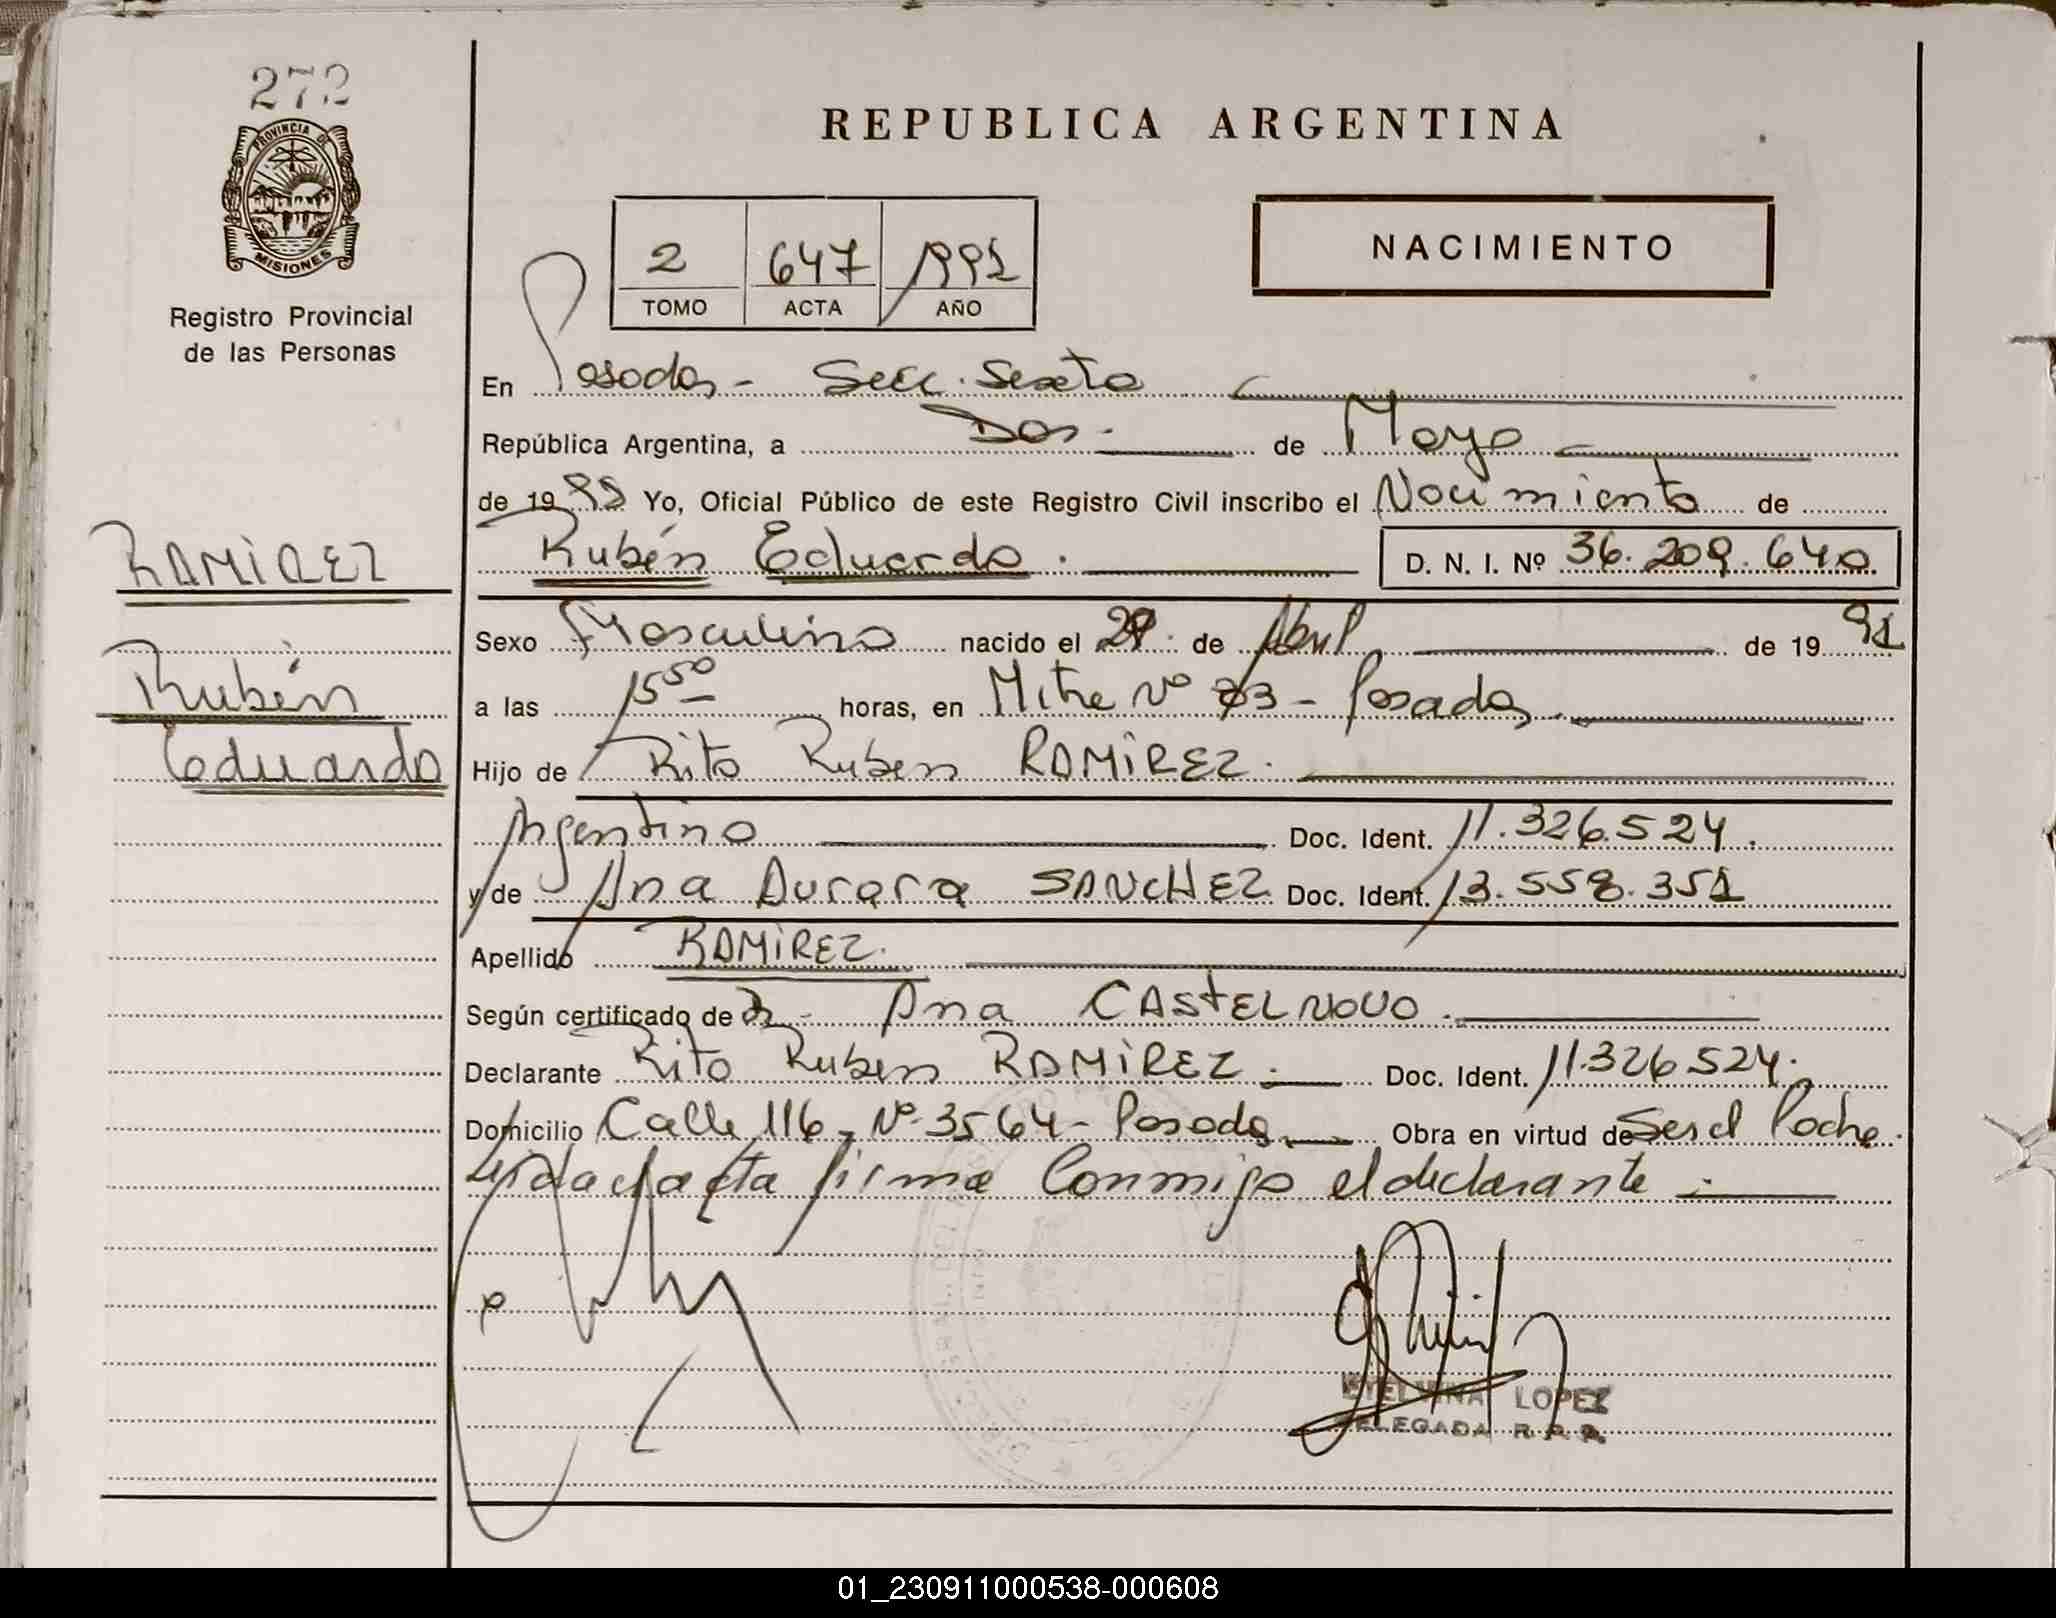 272
PROVINCIA DE
MISIONES
Registro Provincial
de las Personas
REPUBLICA ARGENTINA
NACIMIENTO
2 647 1991
TOMO ACTA AÑO
En Posadas - Secc. Sexta
República Argentina, a Dos.- de Mayo
de 1991 Yo, Oficial Público de este Registro Civil inscribo el Nacimiento de
Rubén Eduardo. D. N. I. Nº 36.209.640
RAMIREZ
Rubén
Eduardo
Sexo Masculino nacido el 29 de Abril de 19 91
a las 15 50 horas, en Mitre Nº 73 - Posadas.
Hijo de Rito Ruben RAMIREZ.
Argentino Doc. Ident. 11.326.524.
y de Ana Aurora SANCHEZ Doc. Ident. 13.558.351
Apellido RAMIREZ.
Según certificado de Dr - Ana CASTELNOVO.
Declarante Rito Ruben RAMIREZ. Doc. Ident. 11.326.524.
Domicilio Calle 116 - Nº 3564 - Posadas Obra en virtud de Ser el Padre.
Leida el acta firma conmigo el declarante.
LOPEZ
DELEGADA R. P. P.
01_230911000538-000608